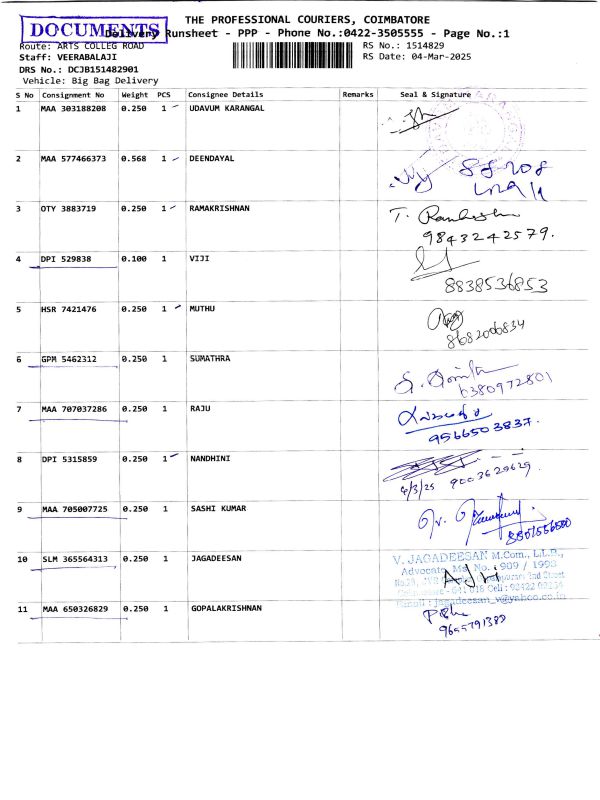 DOCUMENTS
THE PROFESSIONAL COURIERS, COIMBATORE
Delivery Runsheet - PPP - Phone No.:0422-3505555 - Page No.:1
Route: ARTS COLLEG ROAD
RS No.: 1514829
Staff: VEERABALAJI
RS Date: 04-Mar-2025
DRS No.: DCJB151482901
Vehicle: Big Bag Delivery
S No Consignment No Weight PCS Consignee Details Remarks Seal & Signature
1 MAA 303188208 0.250 1 UDAVUM KARANGAL
2 MAA 577466373 0.568 1 DEENDAYAL
3 OTY 3883719 0.250 1 RAMAKRISHNAN
9843242579.
4 DPI 529838 0.100 1 VIJI
8838536853
5 HSR 7421476 0.250 1 MUTHU
8682006834
6 GPM 5462312 0.250 1 SUMATHRA
6380972801
7 MAA 707037286 0.250 1 RAJU
9566503837.
8 DPI 5315859 0.250 1 NANDHINI
4/3/25 9003629629
9 MAA 705007725 0.250 1 SASHI KUMAR
10 SLM 365564313 0.250 1 JAGADEESAN
V. JAGADEESAN M.Com., L.L.B.,
Advocate, Ms No. : 909 / 1998
2nd Street
Email : jagadeesan_v@yahoo.co.in
11 MAA 650326829 0.250 1 GOPALAKRISHNAN